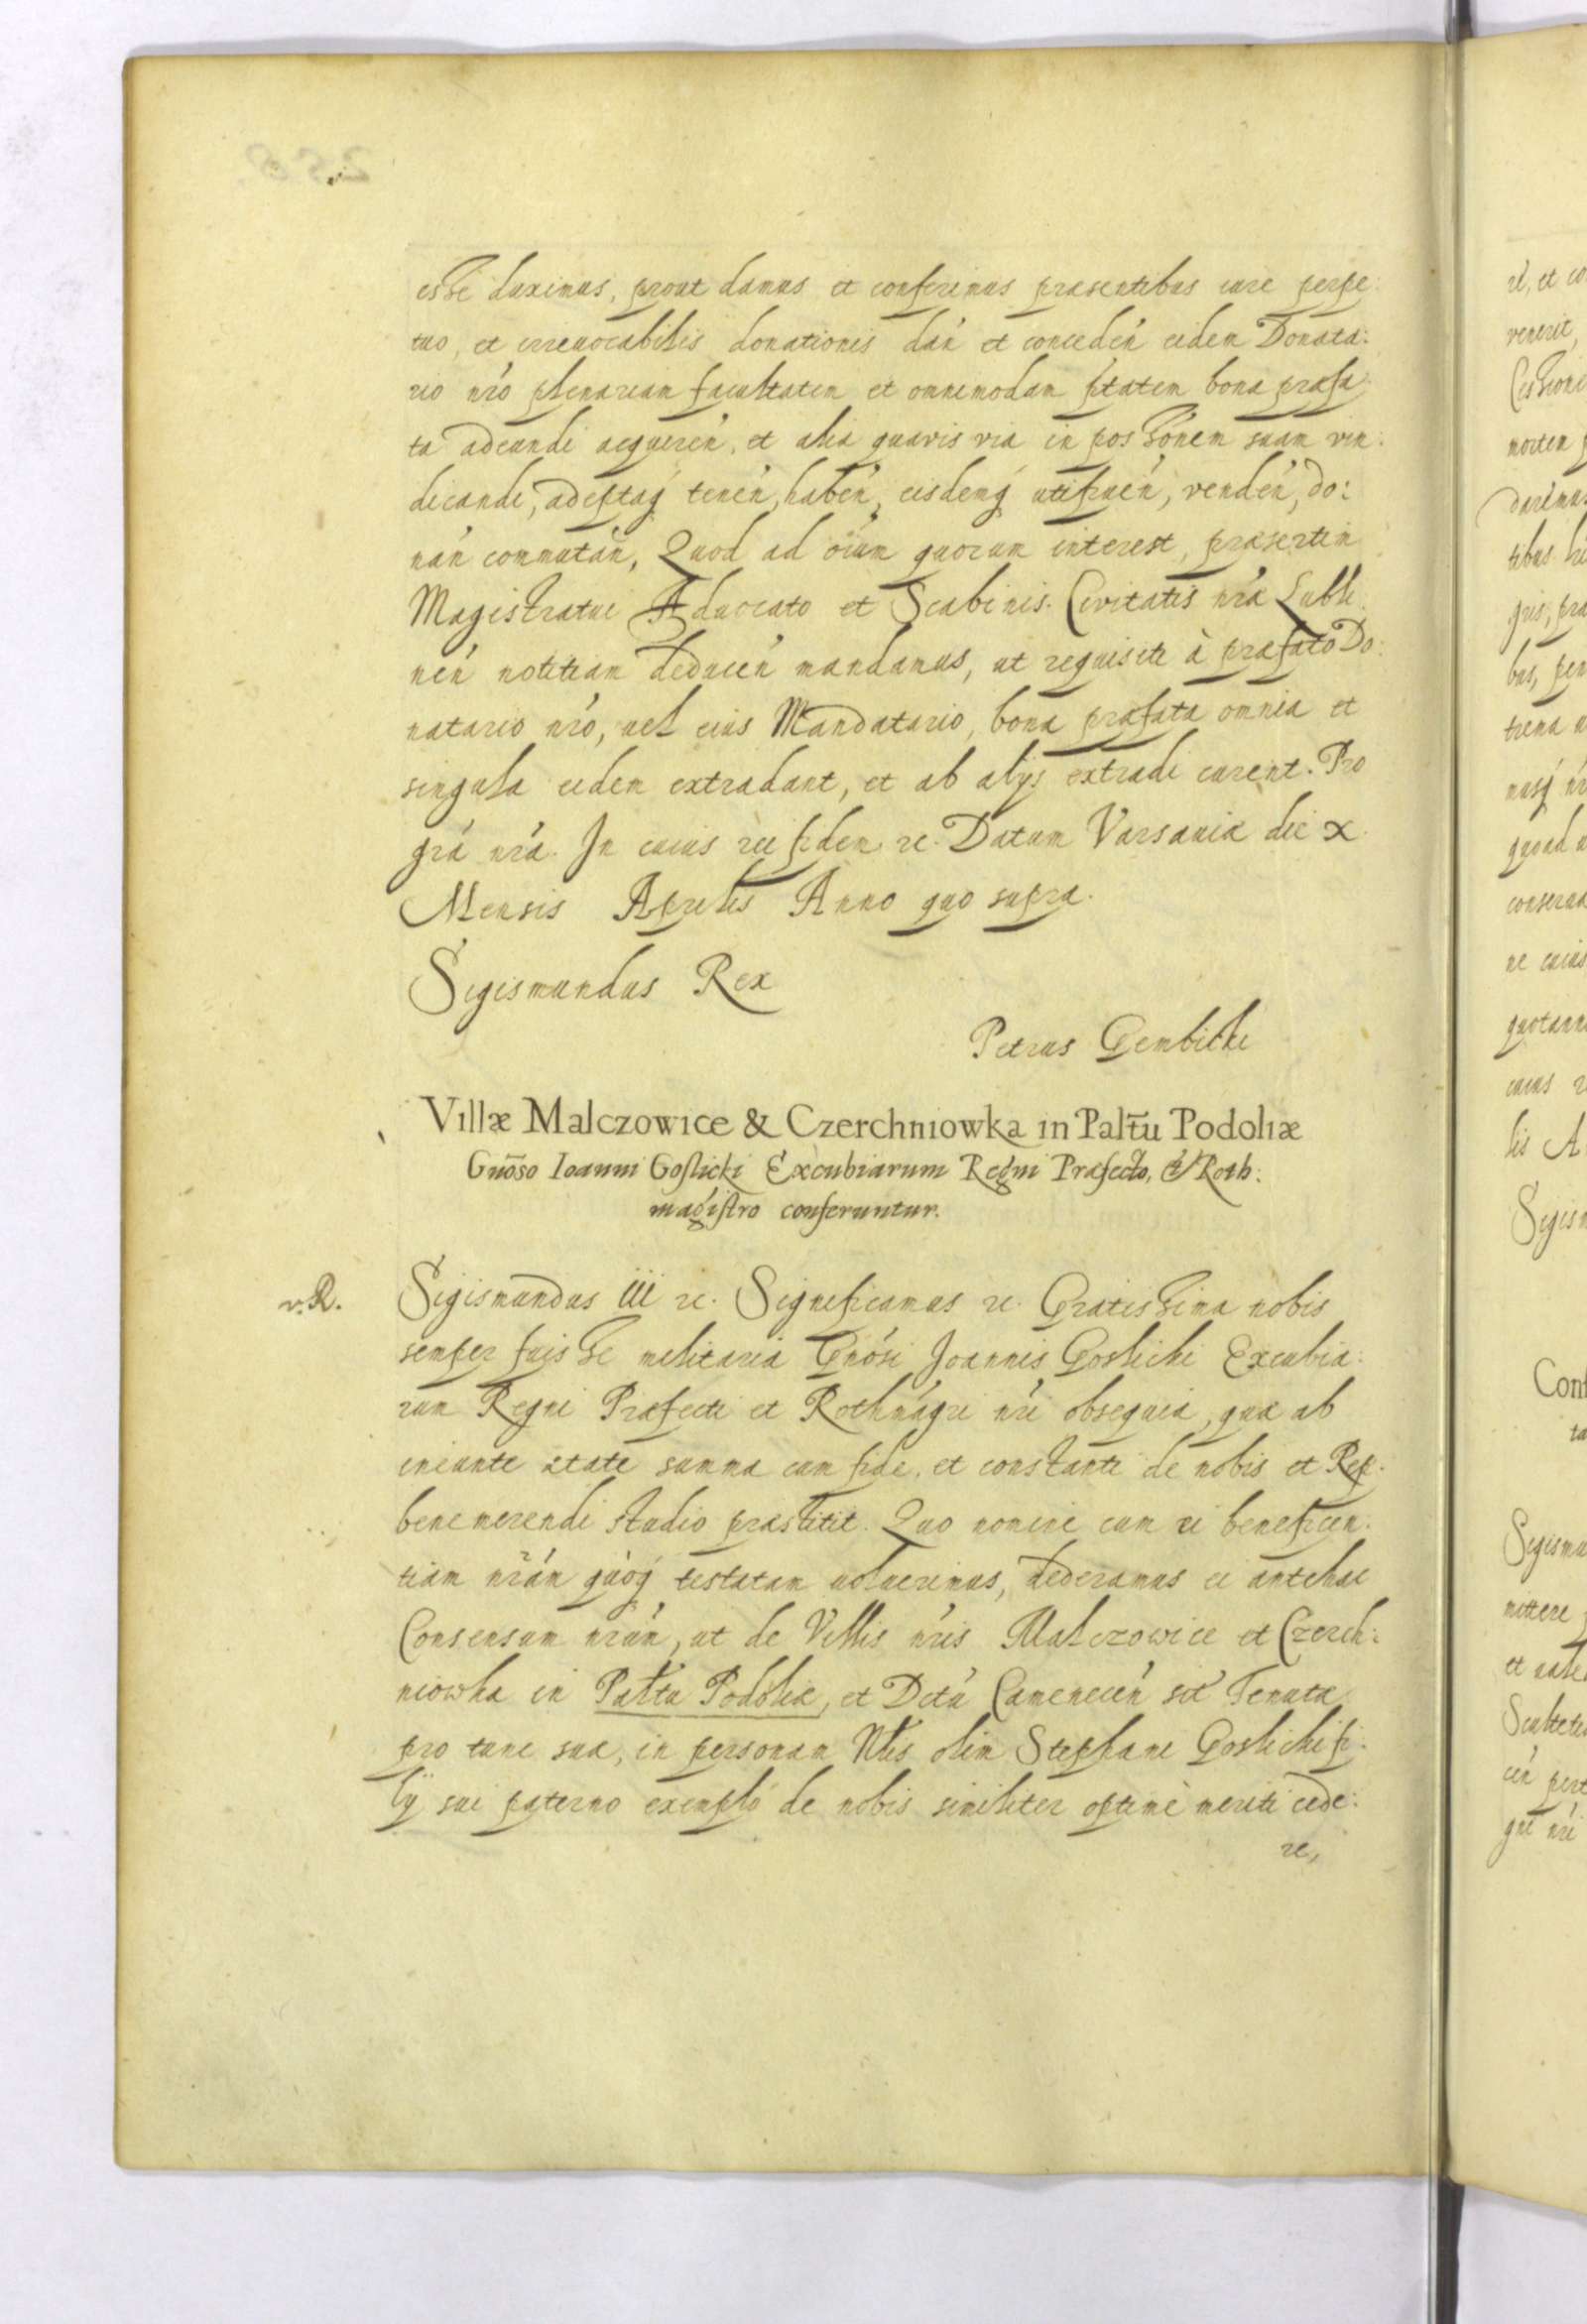 esse duximus, prout damus et conferimus præsentibus iure perpe:
tuo, et irreuocabilis donationis dań et conceden̄ eidem Donata:
rio nr̃o plenariam facultatem et omnimodam ptãtem bona præfa:
ta adeundi acquiren̄, et alia quavis via in possõnem suam vin:
dicandi, adeptaq́ tenen̄, haben̄, eisdemq́ utifruen̄, venden̄, do:
nan̄ commutan̄, Quod ad oĩum quorum interest, præsertim
Magistratui Aduocato et Scabinis Civitatis nr̃æ Lubli:
nen̄ notitiam deducen̄ mandamus, ut requisiti à præfato Do:
natario nr̃o, uel eius Mandatario, bona præfata omnia et
singula eidem extradant, et ab alijs extradi curent. Pro
gr̃a nr̃a. In cuius rei fidem ꝛc. Datum Varsauiæ die X
Mensis Aprilis Anno quo supra.
Sigismundus Rex
Petrus Gembicki
Villæ Malczowice & Czerchniowka in Palt̃u Podoliæ
Gnõso Ioanni Goslicki Excubiarum Regni Præfecto, & Roth:
magistro conferuntur.
v. R. Sigismundus III ꝛc. Significamus ꝛc. Gratissima nobis
semper fuisse militaria Gnõsi Joannis Goslicki Excubia:
rum Regni Præfecti et Rothmãgri nr̃i obsequia, quæ ab
ineunte ætate summa cum fide, et constanti de nobis et Rep:
benemerendi studio præstitit. Quo nomine cum ei beneficen:
tiam nr̃am quoq́ testatam uoluerimus, dederamus ei antehac
Consensum nr̃um, ut de Villis nr̃is Malczowice et Czerch:
niowka in Palt̃u Podoliæ, et Dct̃u Camenecen̄ sit̃ Tenutæ
pro tunc suæ, in personam Nt̃is olim Stephani Goslicki fi:
lij sui paterno exemplo de nobis similiter optimè meriti cede:
re,